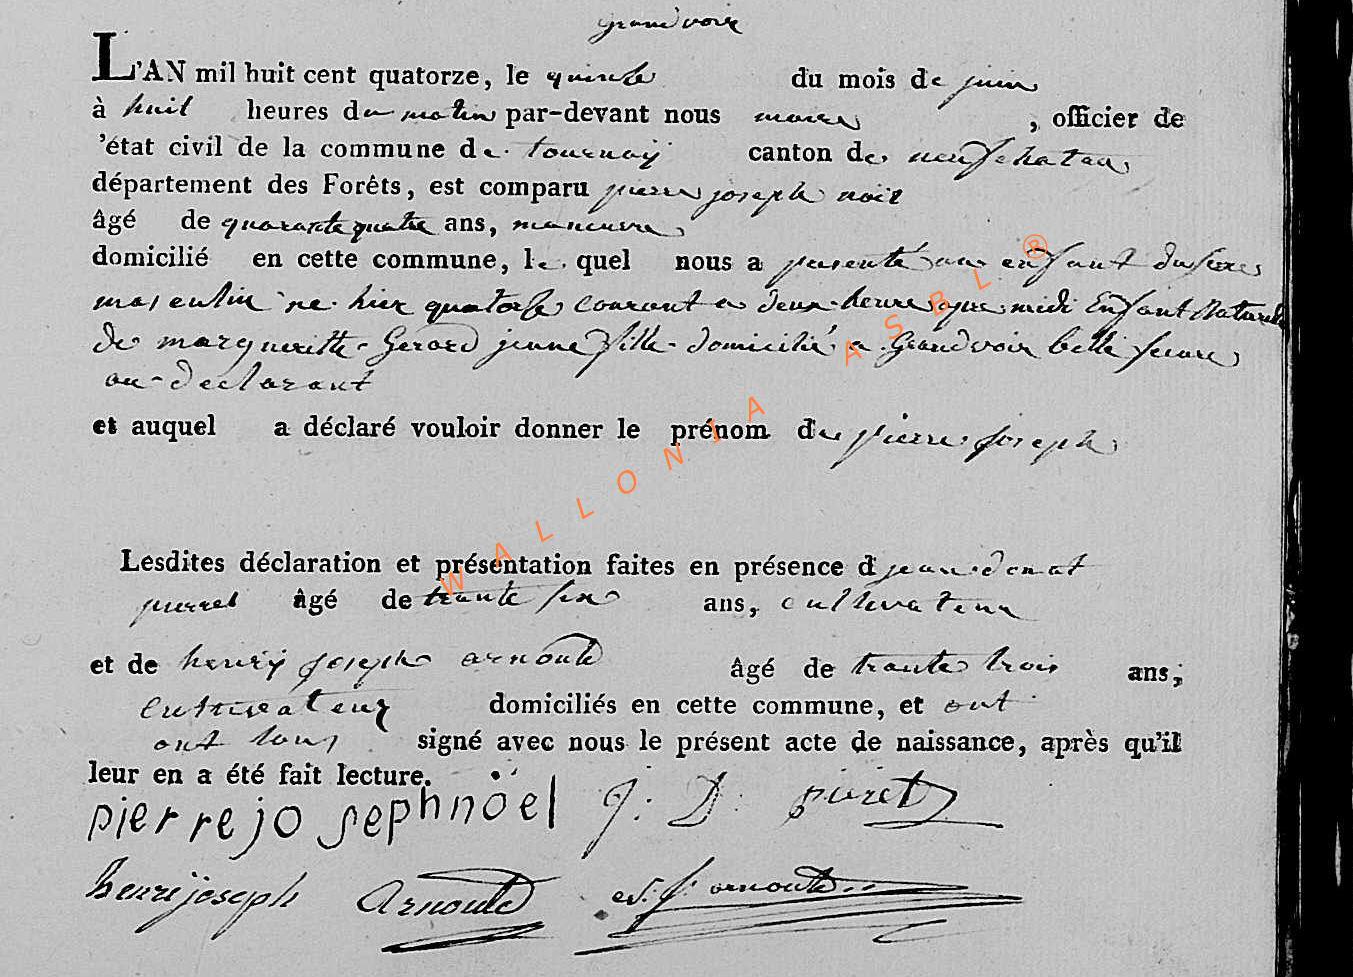 grandvoir
L'AN mil huit cent quatorze, le quinze du mois de juin
à huit heures du matin par-devant nous maire , officier de
'état civil de la commune de tournay canton de neufchatau
département des Forêts, est comparu pierre joseph noël
âgé de quarante quatre ans, maneuvre
domicilié en cette commune, le quel nous a presenté un enfant du sexe
masculin ne hier quatorse courant a deux heure apre midi Enfant Naturel
de margueritte Gerard jeune fille domicilié a Grandvoir belle seure
au declarant
et auquel a déclaré vouloir donner le prénom de pierre joseph
Lesdites déclaration et présentation faites en présence d jean donat
pierret âgé de trante six ans, cultivateur
et de henry joseph arnould âgé de trante trois ans,
cultivateur domiciliés en cette commune, et ont
ont tous signé avec nous le présent acte de naissance, après qu'il
leur en a été fait lecture.
pierre joseph noël J: D: piret
henri joseph Arnould J: arnould
WALLONIA ASBL ®